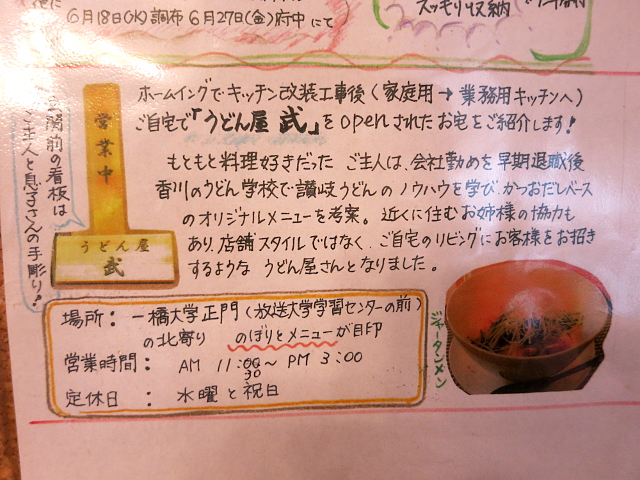 6月18日(水)調布 6月27日(金)府中 にて
スッキリ収納
ホームイングでキッチン改装工事後(家庭用→業務用キッチンへ)
ご自宅で「うどん屋 武」をopenされたお宅をご紹介します!
もともと料理好きだった ご主人は、会社勤めを早期退職後
香川のうどん学校で讃岐うどんのノウハウを学び、かつおだしベース
のオリジナルメニューを考案。近くに住むお姉様の協力も
あり、店舗スタイルではなく、ご自宅のリビングにお客様をお招き
するような うどん屋さんとなりました。
営業中
うどん屋
武
玄関前の看板は
ご主人と息子さんの手彫り!
場所: 一橋大学正門(放送大学学習センターの前)
の北寄り のぼりとメニューが目印
営業時間: AM 11:00~PM 3:00
30
定休日 : 水曜と祝日
ジャータンメン